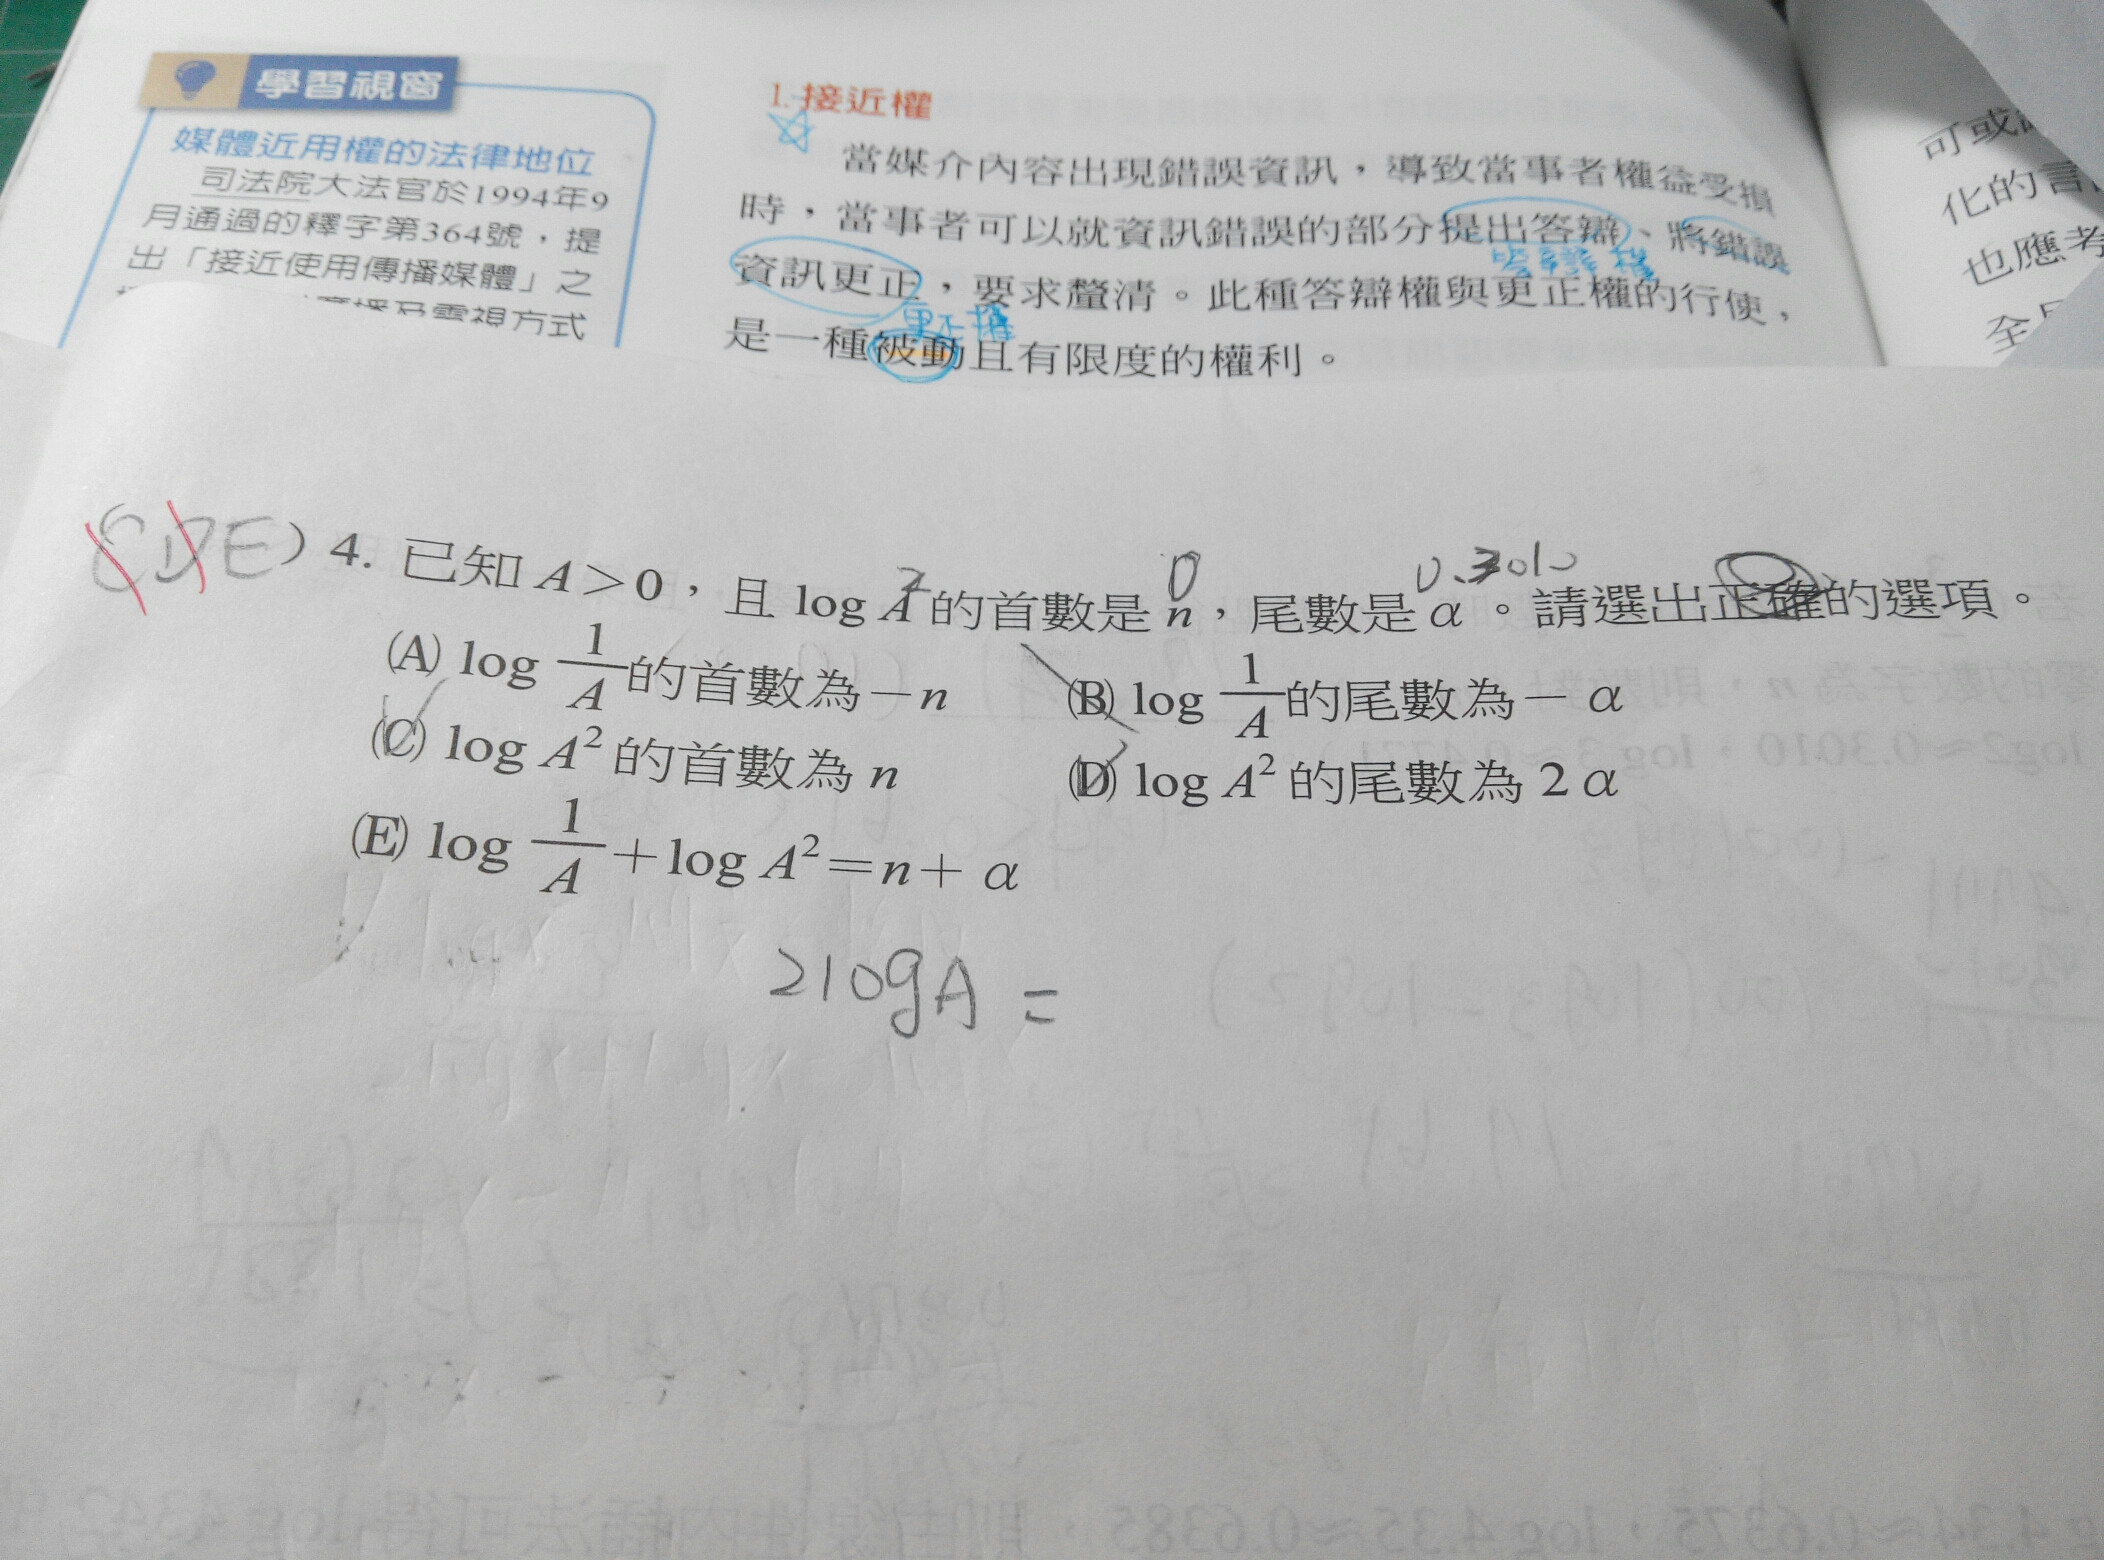 學習視窗
媒體近用權的法律地位
司法院大法官於1994年9
月通過的釋字第364號，提
出「接近使用傳播媒體」之
廣播及電視方式
1.接近權
當媒介內容出現錯誤資訊，導致當事者權益受損
時，當事者可以就資訊錯誤的部分提出答辯、將錯誤
答辯權
資訊更正，要求釐清。此種答辯權與更正權的行使，
更正權
是一種被動且有限度的權利。
可或
化的言
也應考
CDE）4. 已知 A＞0，且 log A 的首數是 n，尾數是 α。請選出正確的選項。
2 0 0.3010
(A) log 1/A 的首數為－n (B) log 1/A 的尾數為－α
(C) log A² 的首數為 n (D) log A² 的尾數為 2α
(E) log 1/A＋log A²＝n＋α
2logA =